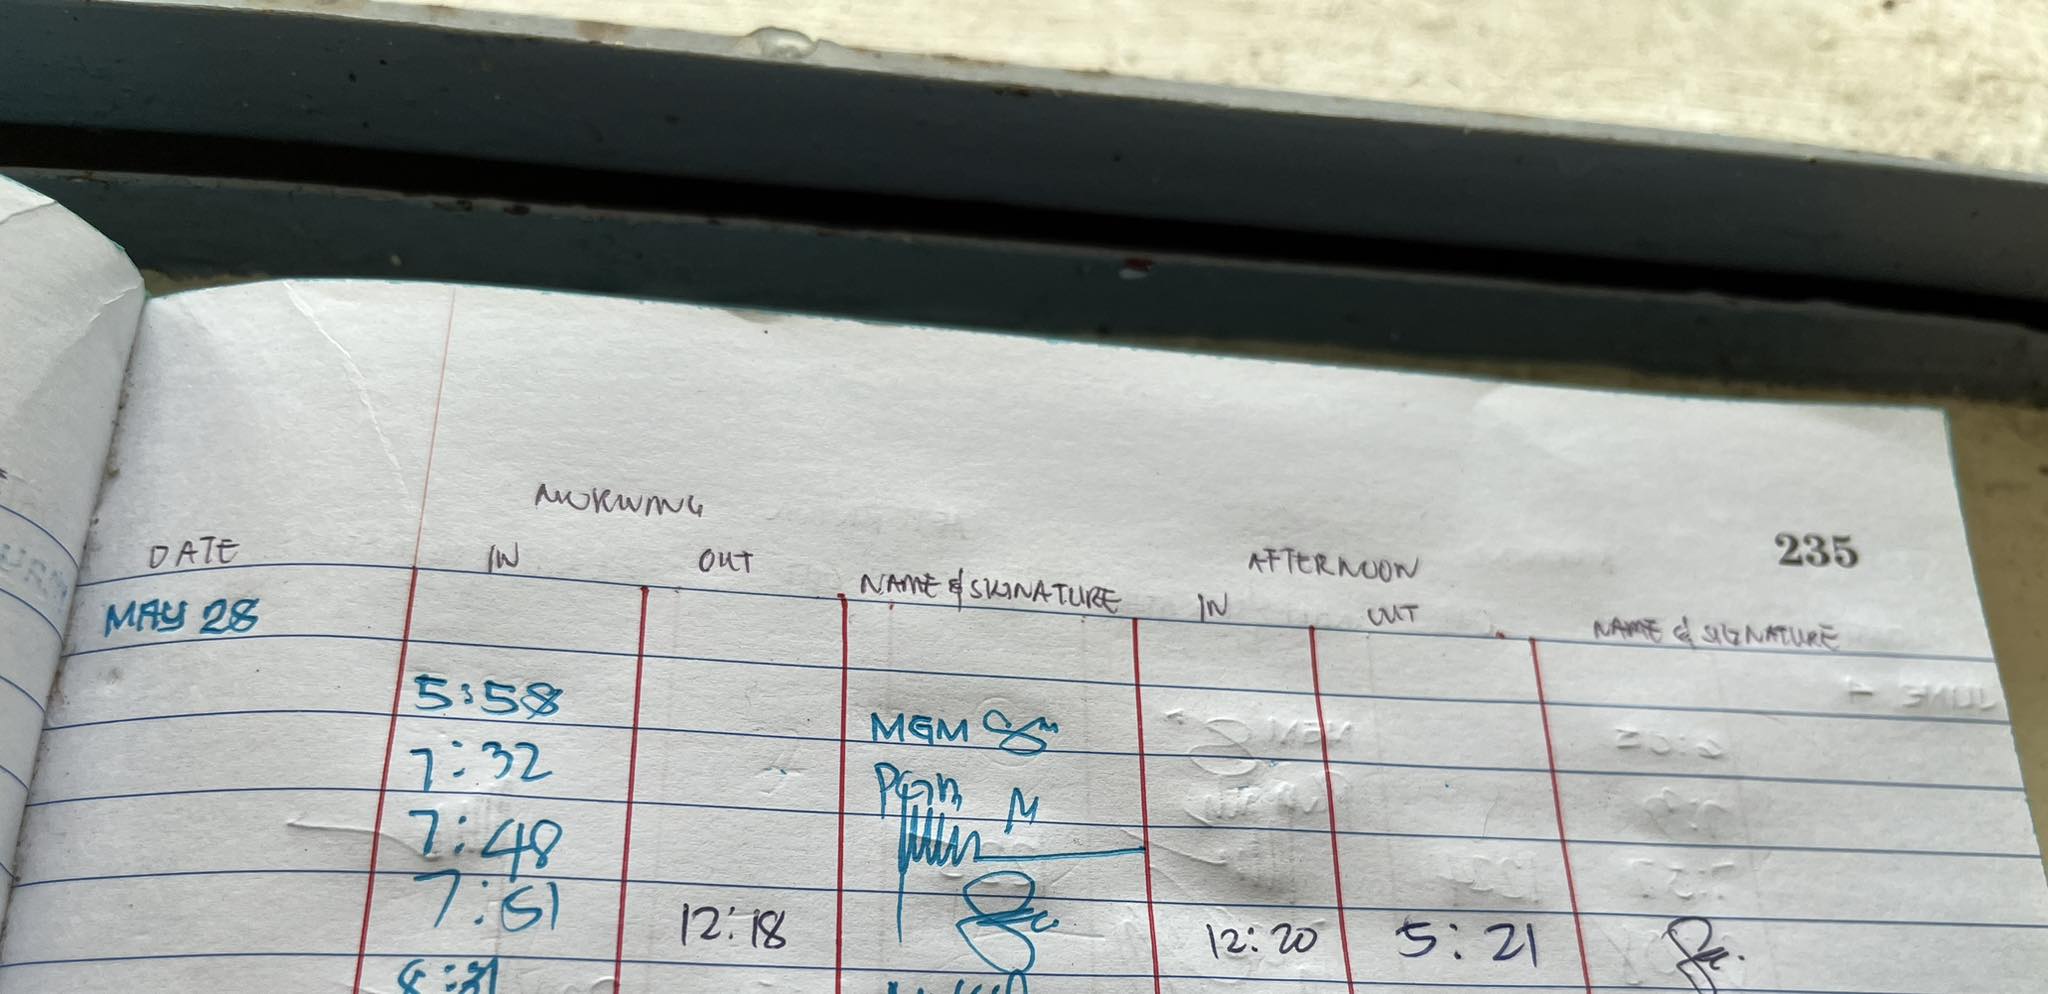 MORNING
235
DATE IN OUT NAME & SIGNATURE AFTERNOON IN OUT NAME & SIGNATURE
MAY 28
5:58 MGM
7:32 PGM M
7:48
7:51 12:18 12:20 5:21
8:31